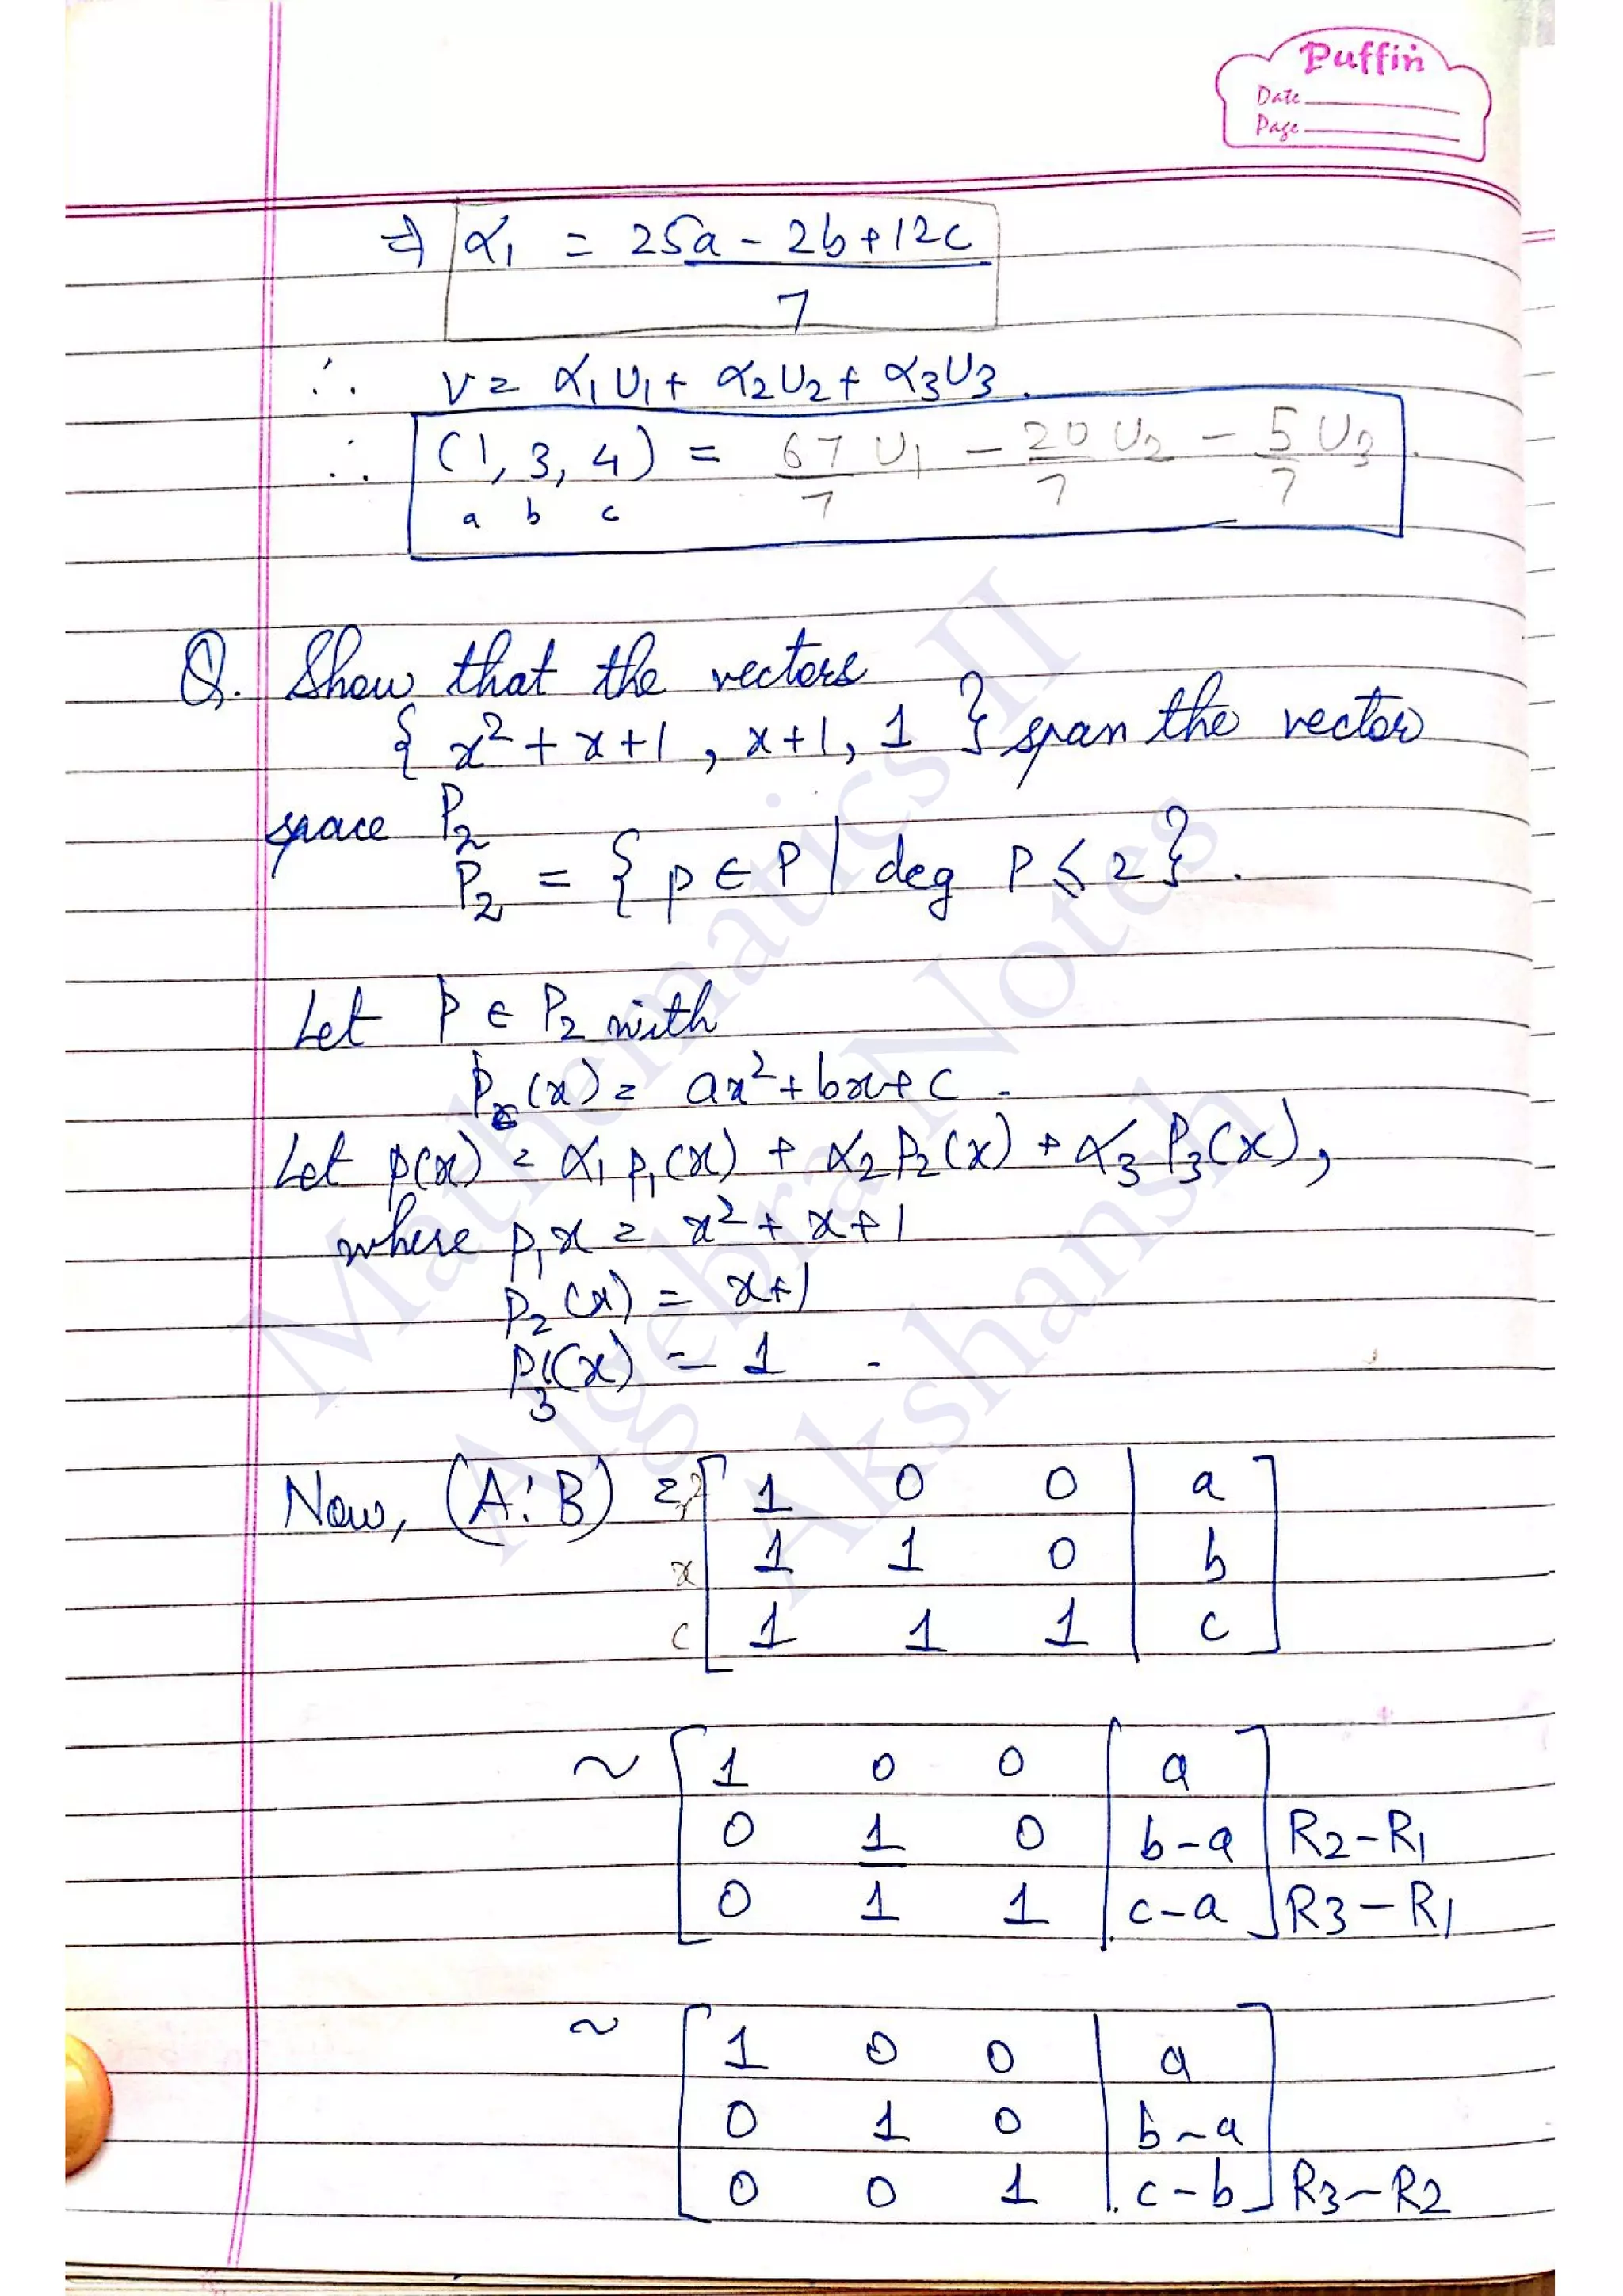 Puffin
Date
Page
⇒ α1 = 25a - 2b + 12c
7
∴ v = α1 U1 + α2 U2 + α3 U3.
∴ (1, 3, 4) = 67/7 U1 - 20/7 U2 - 5/7 U3.
a b c
Q. Show that the vectors
{ x² + x + 1, x+1, 1 } span the vector
space P2
P2 = { p ∈ P | deg P ≤ 2 }.
Let P ∈ P2 with
P (x) = ax² + bx + c.
Let p(x) = α1 p1(x) + α2 P2(x) + α3 P3(x),
where p1x = x² + x + 1
P2(x) = x+1
P3(x) = 1.
Now, (A:B) = x² [ 1 0 0 | a ]
x [ 1 1 0 | b ]
c [ 1 1 1 | c ]
~ [ 1 0 0 | a ]
[ 0 1 0 | b-a ] R2-R1
[ 0 1 1 | c-a ] R3-R1
~ [ 1 0 0 | a ]
[ 0 1 0 | b-a ]
[ 0 0 1 | c-b ] R3-R2
Mathematics II
Algebra Notes
Akshansh